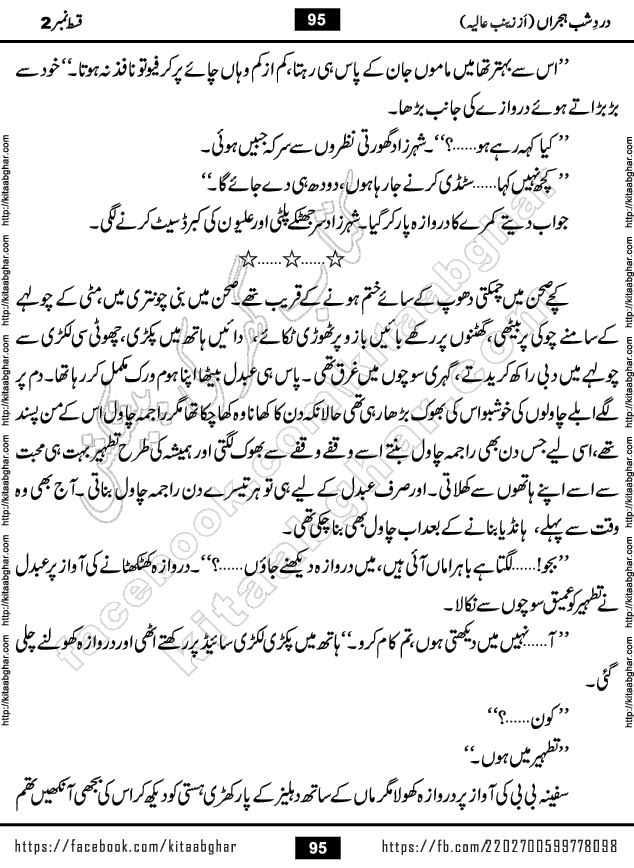 دردِ شب ہجراں (از زینب عالیہ)
95
قسط نمبر 2
’’اس سے بہتر تھا میں ماموں جان کے پاس ہی رہتا، کم از کم وہاں چائے پر کرفیو تو نافذ نہ ہوتا۔‘‘ خود سے
بڑبڑاتے ہوئے دروازے کی جانب بڑھا۔
’’کیا کہہ رہے ہو......؟‘‘۔ شہرزاد گھورتی نظروں سے سرکہ جبیں ہوئی۔
’’کچھ نہیں کہا...... سٹڈی کرنے جا رہا ہوں، دودھ ہی دے جائے گا۔‘‘
جواب دیتے کمرے کا دروازہ پار کر گیا۔ شہرزاد سر جھٹکے پلٹی اور علیون کی کبرڈ سیٹ کرنے لگی۔
☆......☆......☆
کچے صحن میں چمکتی دھوپ کے سائے ختم ہونے کے قریب تھے۔ صحن میں بنی چونتری میں، مٹی کے چولہے
کے سامنے چوکی پر بیٹھی، گھٹنوں پر رکھے بائیں بازو پر ٹھوڑی ٹکائے، دائیں ہاتھ میں پکڑی، چھوٹی سی لکڑی سے
چولہے میں دبی راکھ کریدتے، گہری سوچوں میں غرق تھی۔ پاس ہی عبدل بیٹھا اپنا ہوم ورک مکمل کر رہا تھا۔ دم پر
لگے ابلے چاولوں کی خوشبو اس کی بھوک بڑھا رہی تھی حالانکہ دن کا کھانا وہ کھا چکا تھا مگر راجمہ چاول اس کے من پسند
تھے، اسی لیے جس دن بھی راجمہ چاول بنتے اسے وقفے وقفے سے بھوک لگتی اور ہمیشہ کی طرح تطہیر بہت ہی محبت
سے اسے اپنے ہاتھوں سے کھلاتی۔ اور صرف عبدل کے لیے ہی تو ہر تیسرے دن راجمہ چاول بناتی۔ آج بھی وہ
وقت سے پہلے، ہانڈیا بنانے کے بعد اب چاول بھی بنا چکی تھی۔
’’بجو!...... لگتا ہے باہر اماں آئی ہیں، میں دروازہ دیکھنے جاؤں......؟‘‘۔ دروازہ کھٹکھٹانے کی آواز پر عبدل
نے تطہیر کو عمیق سوچوں سے نکالا۔
’’آ...... نہیں میں دیکھتی ہوں، تم کام کرو۔‘‘ ہاتھ میں پکڑی لکڑی سائیڈ پر رکھتے اٹھی اور دروازہ کھولنے چلی
گئی۔
’’کون......؟‘‘
’’تطہیر میں ہوں۔‘‘
سفینہ بی بی کی آواز پر دروازہ کھولا مگر ماں کے ساتھ دہلیز کے پار کھڑی ہستی کو دیکھ کر اس کی بجھی آنکھیں تھم
http://kitaabghar.com http://kitaabghar.com http://kitaabghar.com http://kitaabghar.com http://kitaabghar.com http://kitaabghar.com
http://kitaabghar.com http://kitaabghar.com http://kitaabghar.com http://kitaabghar.com http://kitaabghar.com http://kitaabghar.com
facebook.com/kitaabghar
kitaabghar.com
https://facebook.com/kitaabghar
95
https://fb.com/2202700599778098